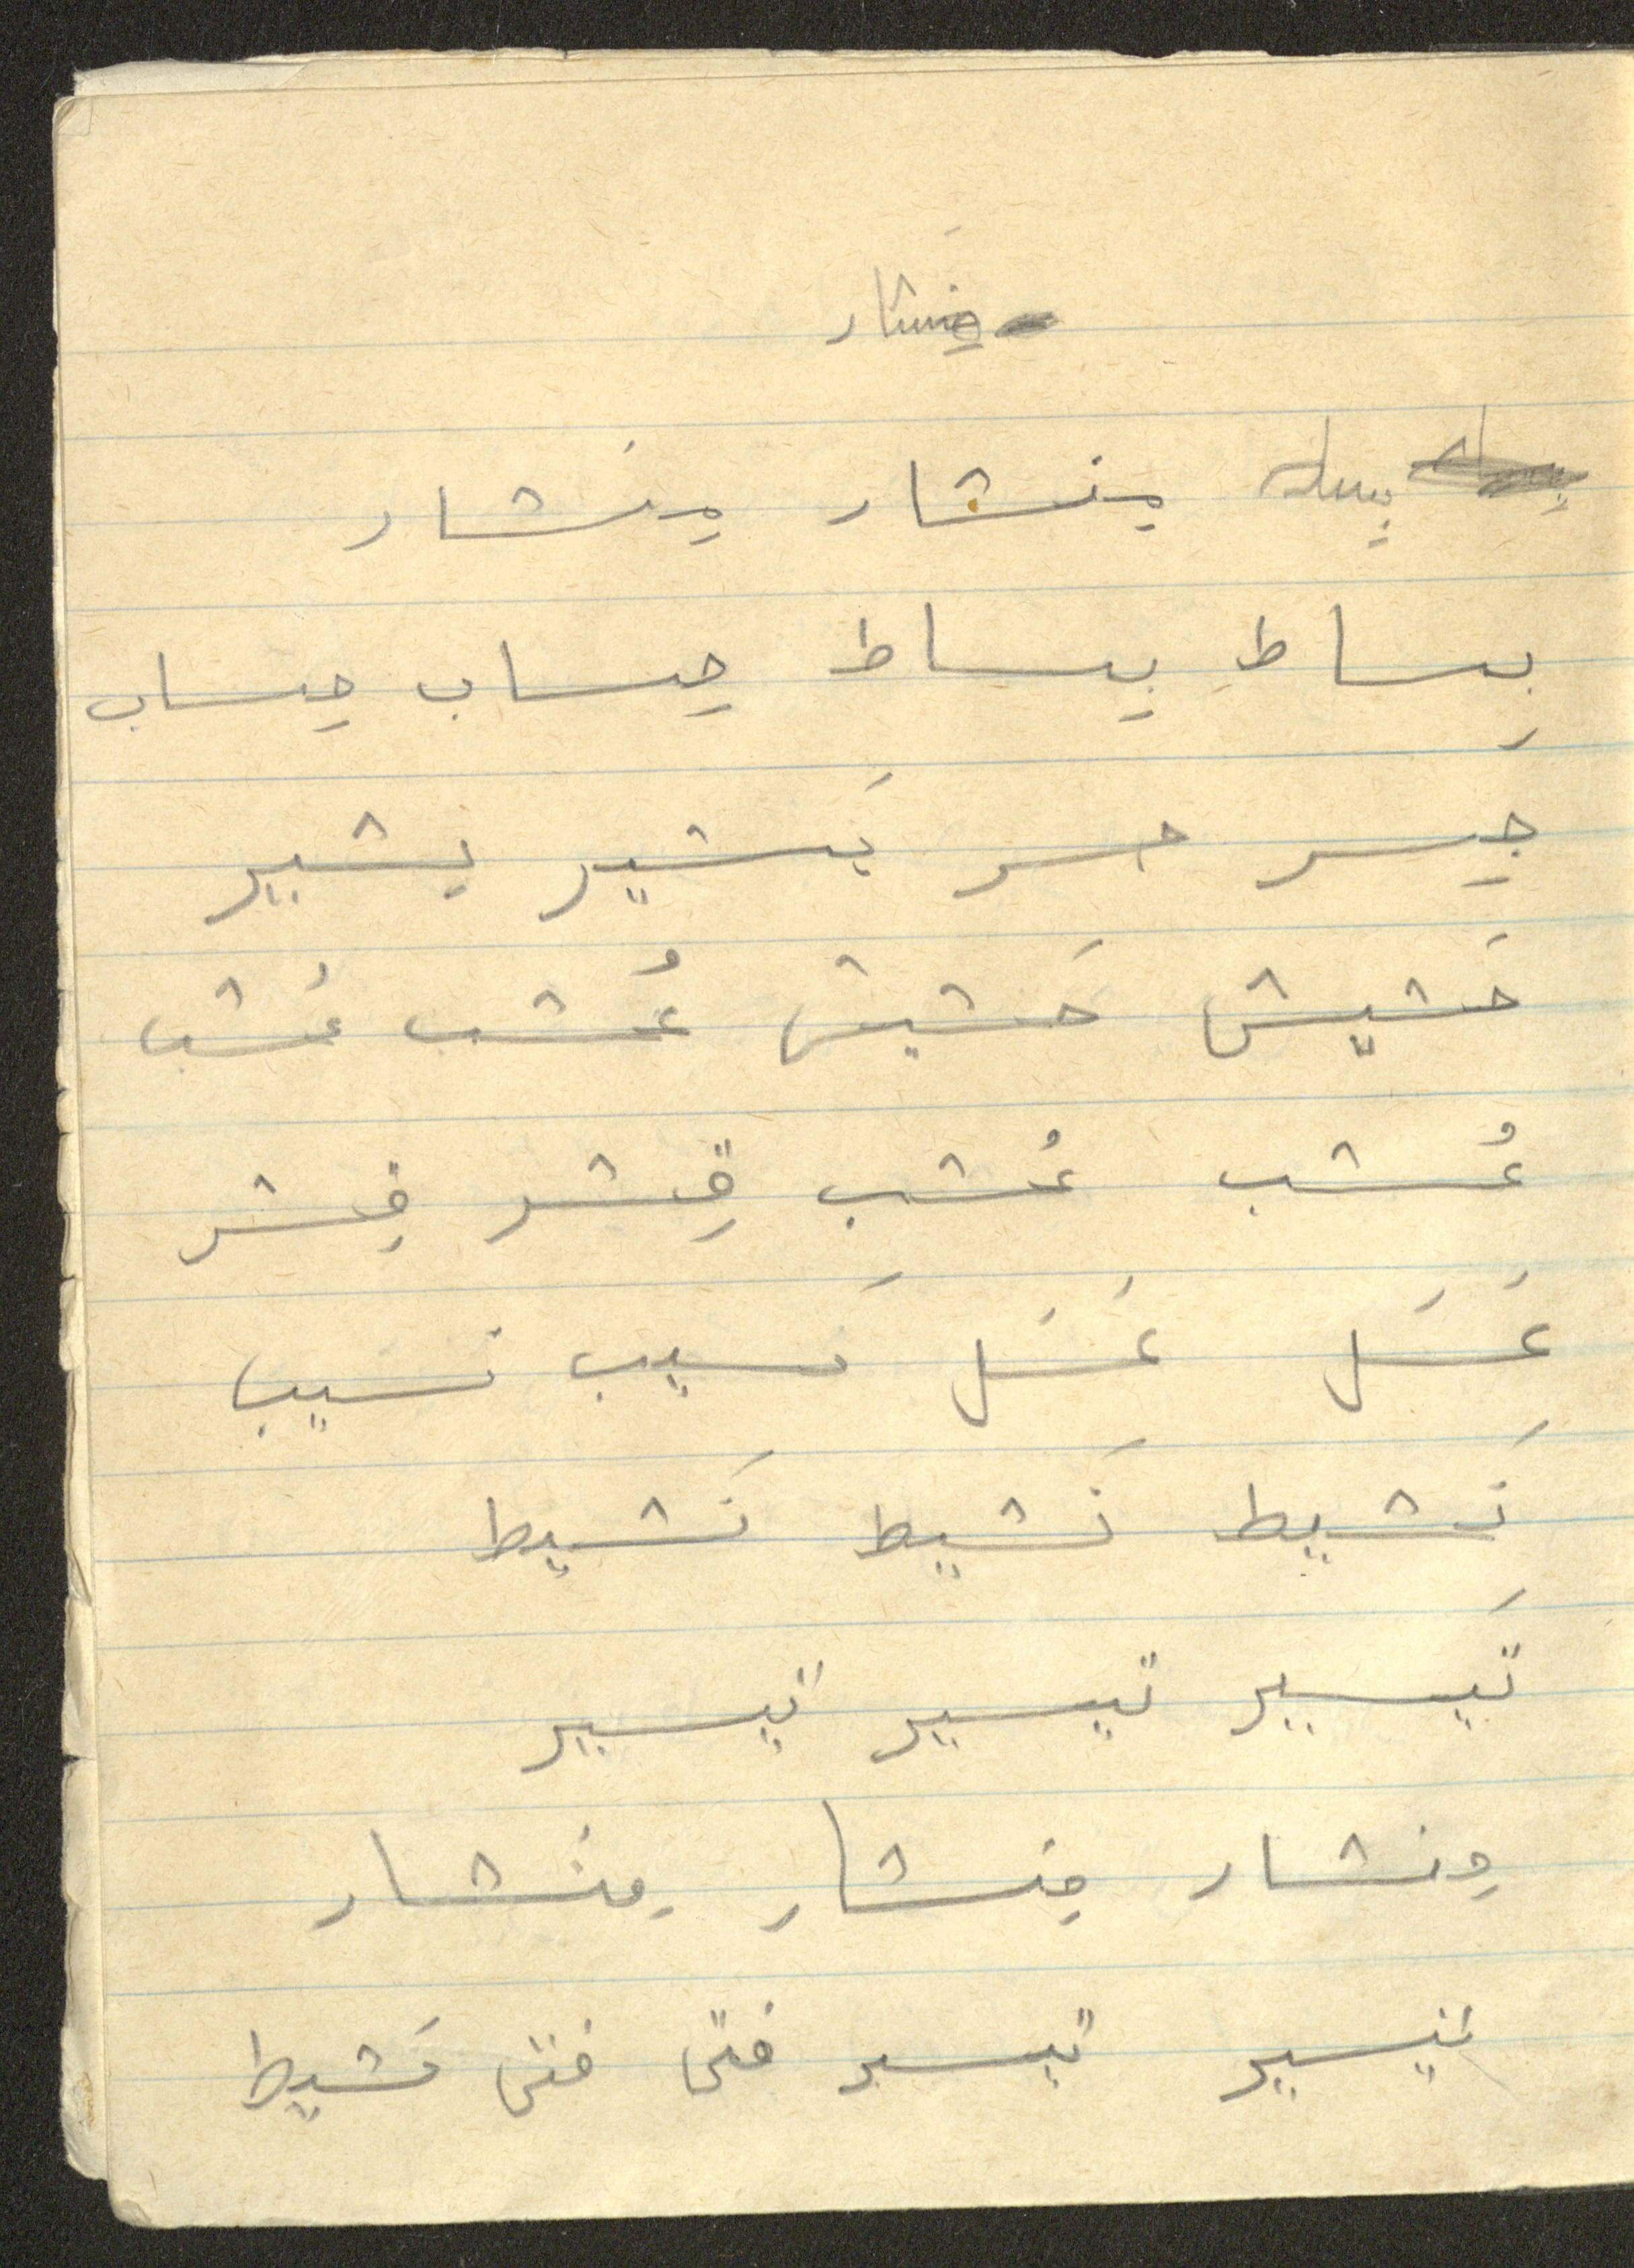 منشار
بساط منشار مِنشار
بِساطِ بِساط حِساب حِساب
جِسر جسر يَشير يشير
حَشيش حَشيش عُشب عُشب
عُشب عُشب قِشر قِشر
عَسَل عَسَل نَسيب نسيب
نَشيط نَشيط نَشيط
تَيسير تيسير تَيسير
مِنشار مِنشار مِنشار
تَيسير تيسير فتًى فتى نَشيط